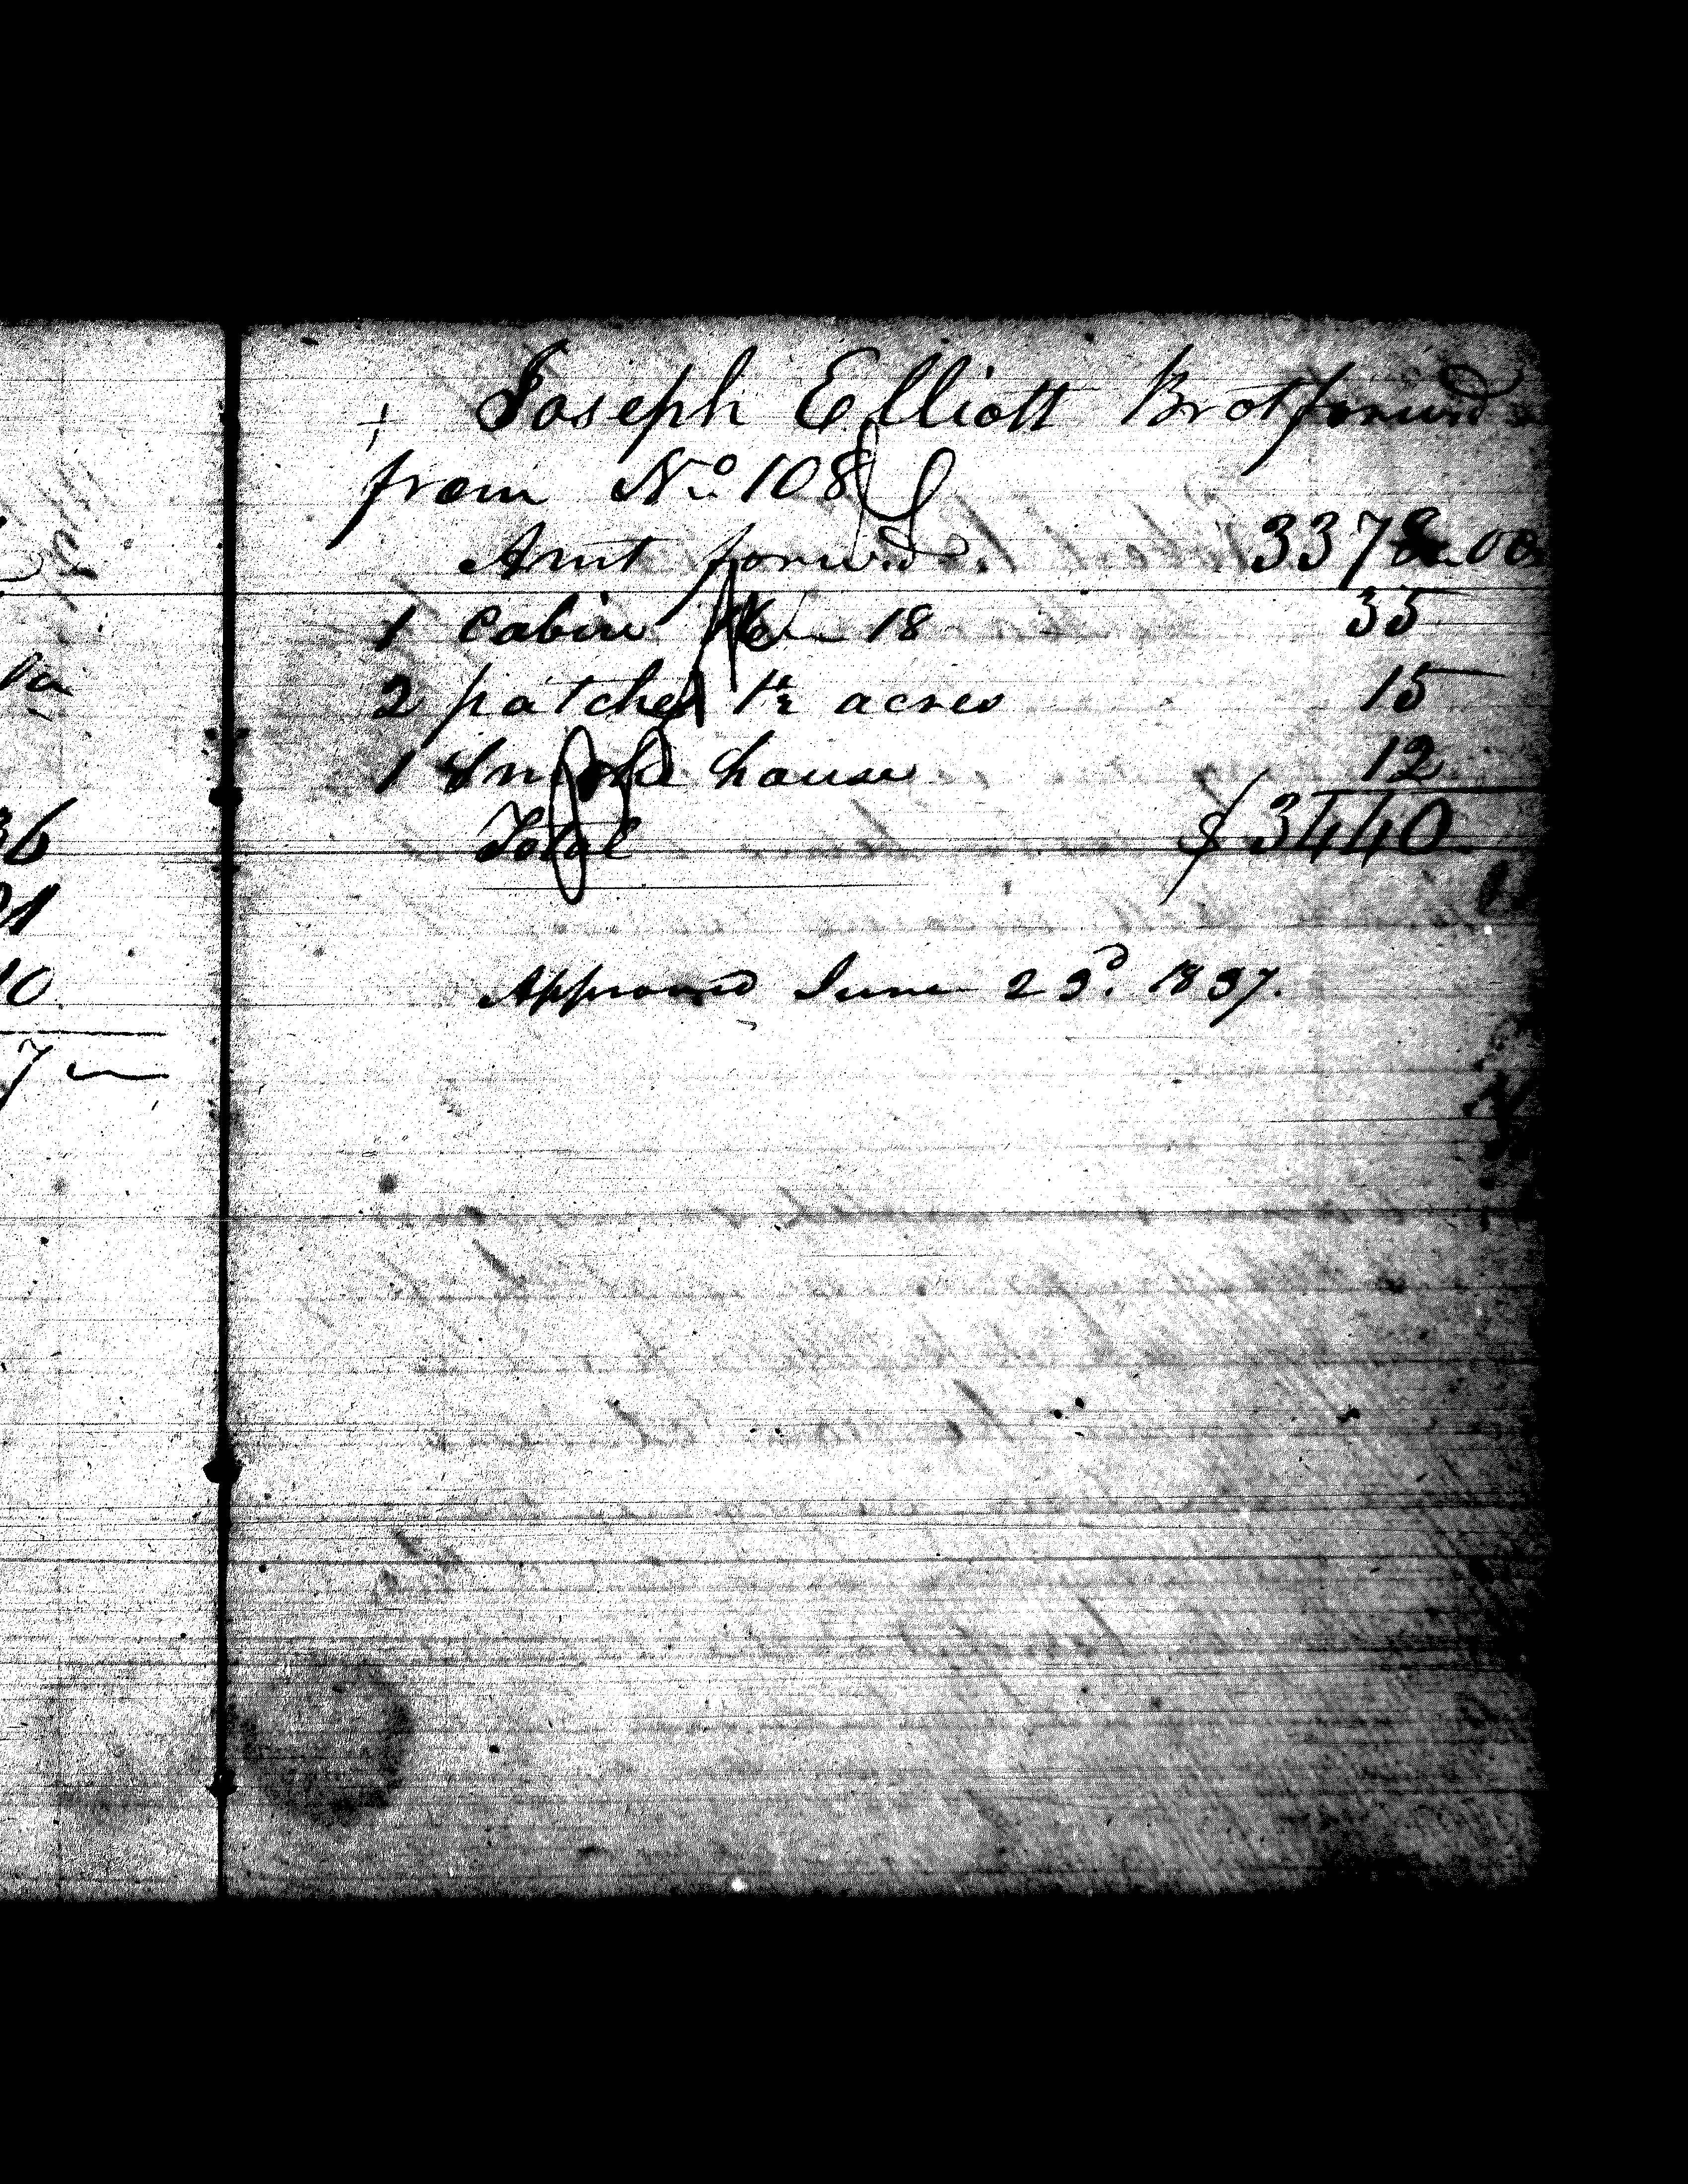 + Joseph Elliott Brot forwd
from No. 108
Amt forwd. 3378.00
1 Cabin 16 18 35
2 patches 1½ acres 15
1 Smoke house 12
Total $3440.
Approved June 23d. 1837.
36
21
10
7